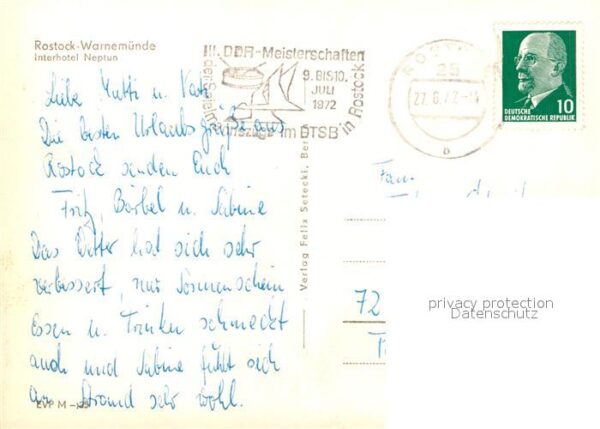 Rostock-Warnemünde
Interhotel Neptun
III. DDR-Meisterschaften
9. BIS 10.
JULI
1972
im DTSB in Rostock
25
27.6.72
b
10
DEUTSCHE
DEMOKRATISCHE REPUBLIK
Liebe Mutti u. Vati
Die besten Urlaubsgrüße aus
Rostock senden Euch
Fritz, Bärbel u. Sabine
Das Wetter hat sich sehr
verbessert, nur Sonnenschein
Essen u. Trinken schmeckt
auch und Sabine fühlt sich
am Strand sehr wohl.
EVP M
Verlag Felix Setecki, Ber
72
privacy protection
Datenschutz